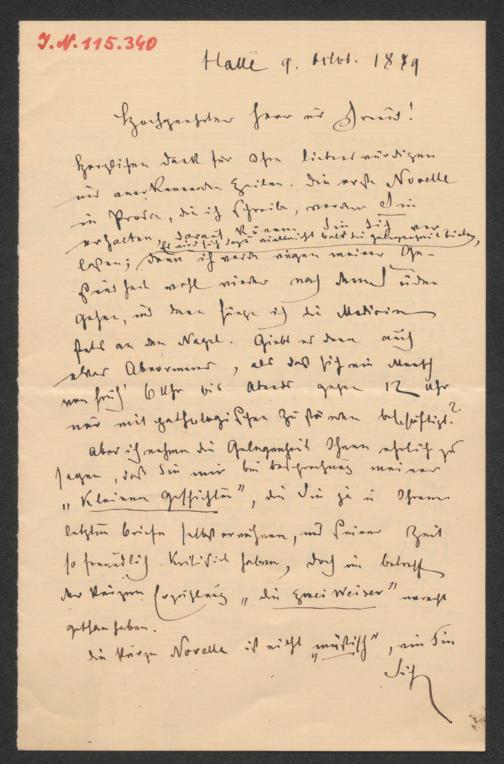 I.N. 115.340
Halle 9. Octob. 1879
Hochgeehrter Herr und Freund!
Herzlichen Dank für Ihre liebenswürdigen
und anerkennenden Zeilen. Die erste Novelle
in Prosa, die ich schreibe, werden Sie
erhalten, darauf können Sie sich ver
Es wird sich dazu vielleicht bald die Gelegenheit bieten,
laßen; denn ich werde wegen meiner Ge-
sundheit wohl wieder nach dem Süden
gehen, und dann hänge ich die Medicin
stets an den Nagel. Giebt es denn auch
etwas Abnormeres, als daß sich ein Mensch
von früh 6 Uhr bis Abends gegen 12 Uhr
nur mit pathologischen Zuständen beschäftigt?
Aber ich nehme die Gelegenheit Ihnen ehrlich zu
sagen, daß Sie mir bei Besprechung meiner
„Kleinen Geschichten", die Sie ja in Ihrem
letzten Briefe selbst erwähnen, und seiner Zeit
so freundlich kritisirt haben, doch in betreff
der kurzen Erzählung „die zwei Weiser" unrecht
gethan haben.
Die kurze Novelle ist nicht „mystisch", wie Sie
Sich